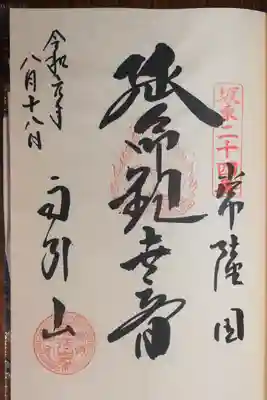 坂東二十四
常陸国
延命観世音
雨引山
令和元年
八月十八日